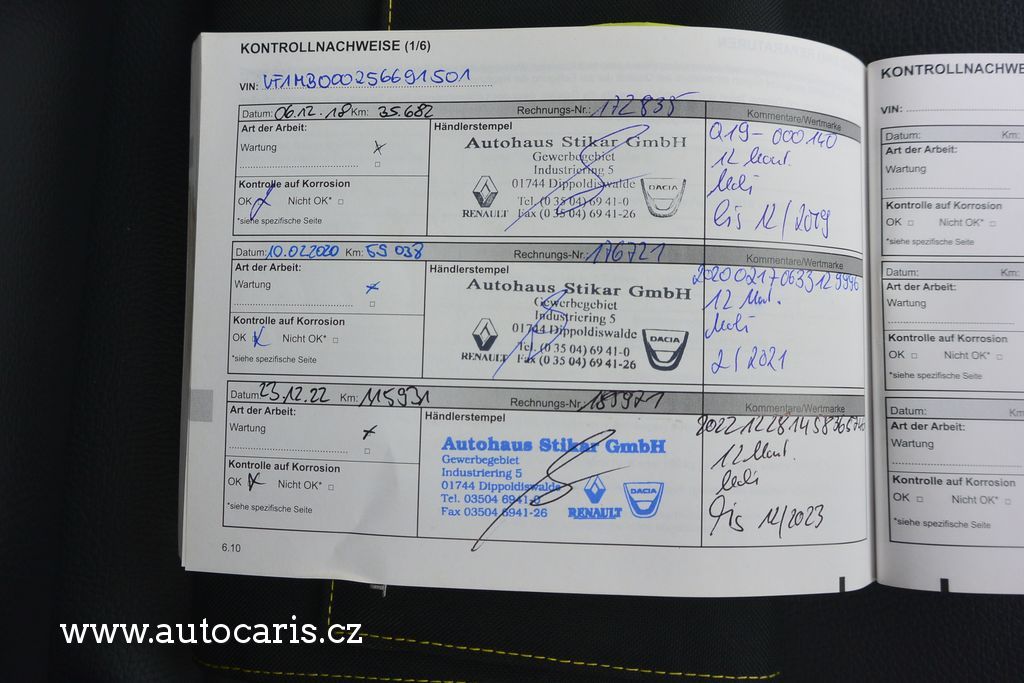 KONTROLLNACHWEISE (1/6)
VIN: VF1MB000256691501
Datum: 06.12.18 Km: 35.682 Rechnungs-Nr.: 172835 Kommentare/Wertmarke
Art der Arbeit:
Wartung x
Kontrolle auf Korrosion
OK x Nicht OK* □
*siehe spezifische Seite
Händlerstempel
Autohaus Stikar GmbH
Gewerbegebiet
Industriering 5
01744 Dippoldiswalde
Tel. (0 35 04) 69 41-0
Fax (0 35 04) 69 41-26
RENAULT
DACIA
Q19-000140
12 Mont.
bis 12/2019
Datum: 10.02.2020 Km: 59 038 Rechnungs-Nr.: 176721 Kommentare/Wertmarke
Art der Arbeit:
Wartung x
Kontrolle auf Korrosion
OK x Nicht OK* □
*siehe spezifische Seite
Händlerstempel
Autohaus Stikar GmbH
Gewerbegebiet
Industriering 5
01744 Dippoldiswalde
Tel. (0 35 04) 69 41-0
Fax (0 35 04) 69 41-26
RENAULT
DACIA
202002170633129996
12 Mont.
2/2021
Datum: 23.12.22 Km: 115931 Rechnungs-Nr.: 185971 Kommentare/Wertmarke
Art der Arbeit:
Wartung x
Kontrolle auf Korrosion
OK x Nicht OK* □
*siehe spezifische Seite
Händlerstempel
Autohaus Stikar GmbH
Gewerbegebiet
Industriering 5
01744 Dippoldiswalde
Tel. 03504 6941-0
Fax 03504 6941-26
RENAULT
DACIA
12 Mont.
Bis 12/2023
6.10
KONTROLLNACHWE
VIN:
Datum: Km:
Art der Arbeit:
Wartung
Kontrolle auf Korrosion
OK □ Nicht OK* □
*siehe spezifische Seite
Datum: Km:
Art der Arbeit:
Wartung
Kontrolle auf Korrosion
OK □ Nicht OK* □
*siehe spezifische Seite
Datum: Km:
Art der Arbeit:
Wartung
Kontrolle auf Korrosion
OK □ Nicht OK* □
*siehe spezifische Seite
www.autocaris.cz